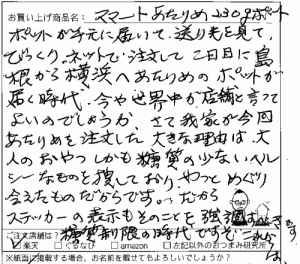 お買い上げ商品名: スマートあたりめ230gポット
ポットが手元に届いて、送り先を見て、
びっくり。ネットで注文して二日目に島
根から横浜へあたりめのポットが
届く時代。今や世界中が店舗と言って
よいのでしょうか。さて我家が今回
あたりめを注文した大きな理由は、大
人のおやつしかも糖質の少ないヘル
シーなものを捜しており、やっとめぐり
会えたものだからです。だから
ステッカーの表示もそのことを強調
糖質制限の時代ですと これからは
ご注文店舗は?
□楽天 □ぐるなび □amazon □左記以外のおつまみ研究所
※紙面に掲載する場合、お名前を載せてもよろしいでしょうか?